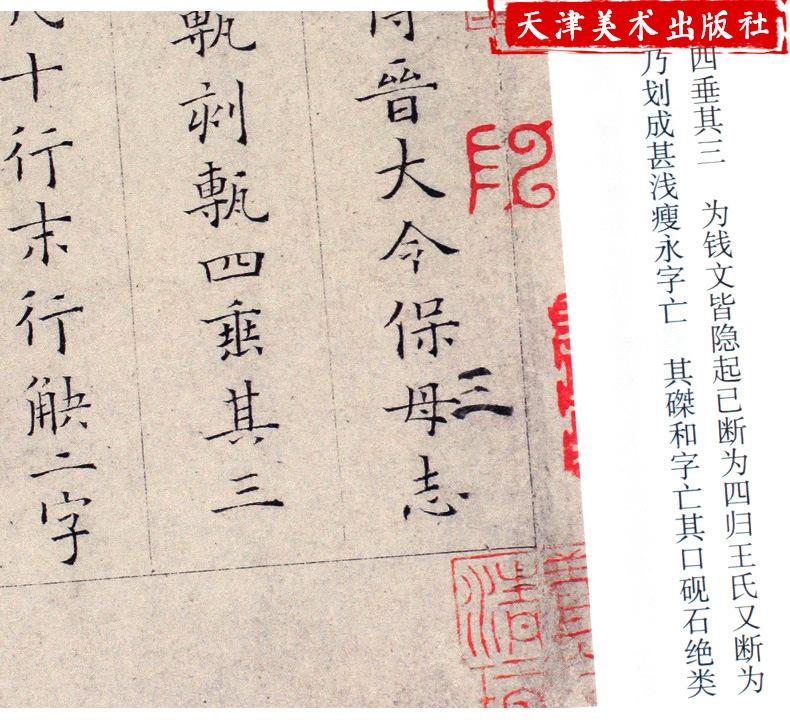 天津美术出版社
四垂其三　为钱文皆隐起已断为四归王氏又断为
乃划成甚浅瘦永字亡　其磔和字亡其口砚石绝类
晉大令保母志
三
甎刻甎四垂其三
十行末行觖二字